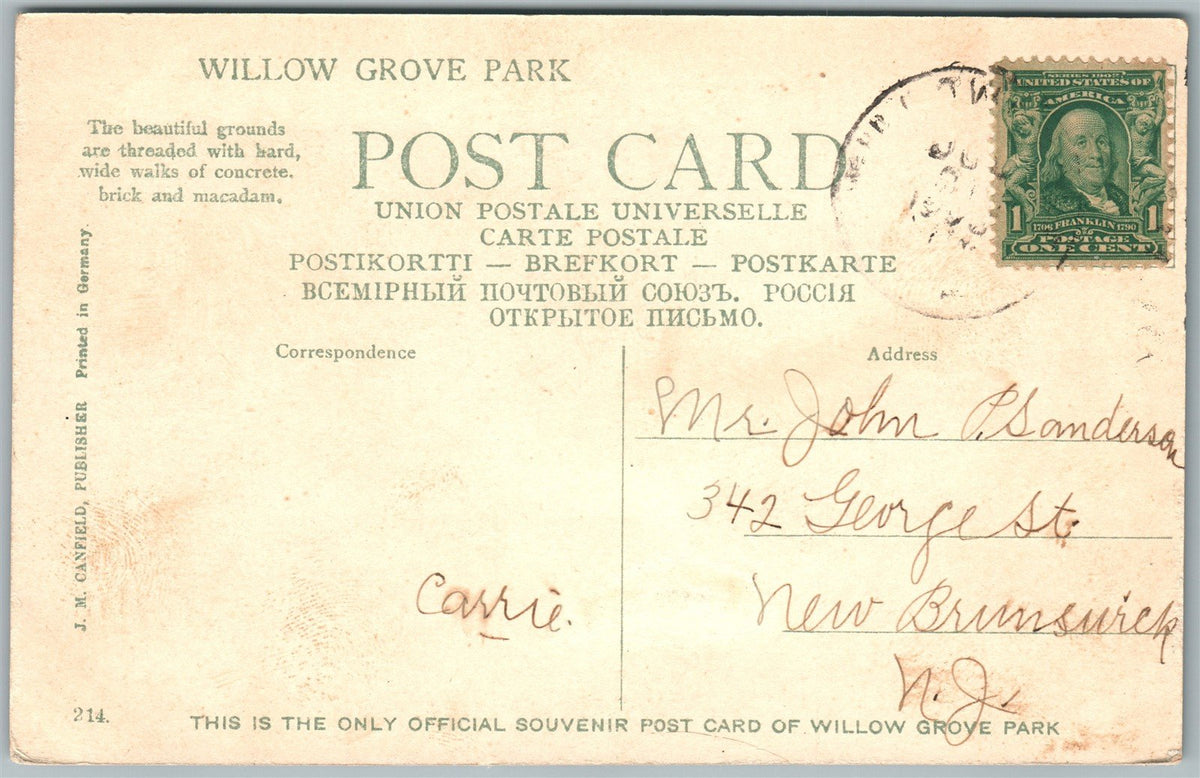 WILLOW GROVE PARK
The beautiful grounds
are threaded with hard,
wide walks of concrete,
brick and macadam.
POST CARD
UNION POSTALE UNIVERSELLE
CARTE POSTALE
POSTIKORTTI — BREFKORT — POSTKARTE
ВСЕМІРНЫЙ ПОЧТОВЫЙ СОЮЗЪ. РОССІЯ
ОТКРЫТОЕ ПИСЬМО.
SERIES 1902
UNITED STATES OF
AMERICA
1 1
1706 FRANKLIN 1790
POSTAGE
ONE CENT
J. M. CANFIELD, PUBLISHER Printed in Germany.
Correspondence
Address
Mr. John P. Sanderson
342 George St.
New Brunswick
N.J.
Carrie.
214.
THIS IS THE ONLY OFFICIAL SOUVENIR POST CARD OF WILLOW GROVE PARK